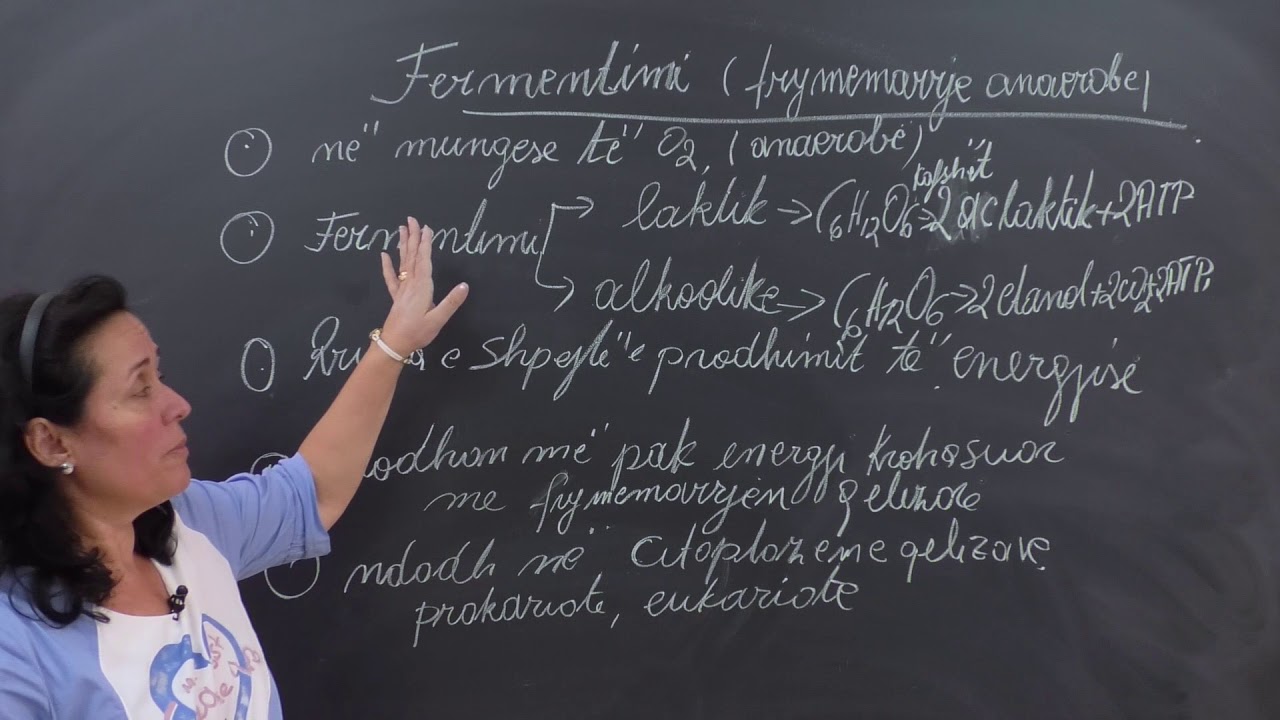 Fermentimi (frymemarrje anaerobe)
në mungese të O2, (anaerobë)
kafshët
Fermentimi → laktik → C6H12O6 → 2 ac laktik + 2ATP
→ alkoolike → C6H12O6 → 2etanol + 2CO2 + 2ATP
e shpejtë e prodhimit të energjisë
më pak energji krahasuar
me frymemarrjen qelizore
ndodh në citoplazene qelizave
prokariote, eukariote